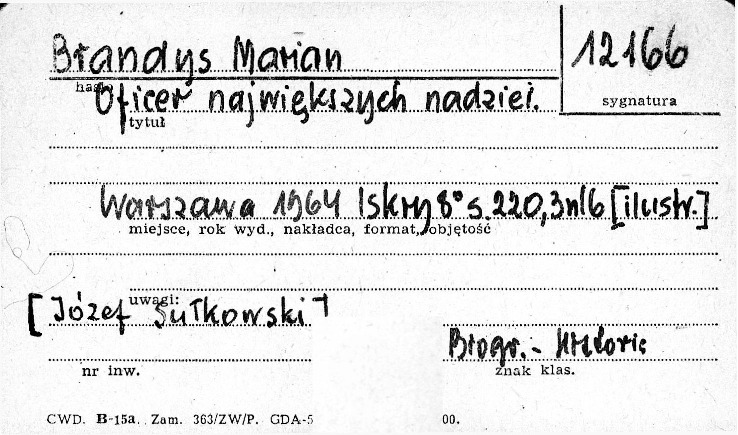 Brandys Marian
12166
hasło
Oficer największych nadziei.
sygnatura
tytuł
Warszawa 1964 Iskry 8° s. 220, 3 nlb [ilustr.]
miejsce, rok wyd., nakładca, format, objętość
uwagi:
[Józef Sułkowski]
Biogr. - Historia
nr inw.
znak klas.
CWD. B-15a. Zam. 363/ZW/P. GDA-5 00.